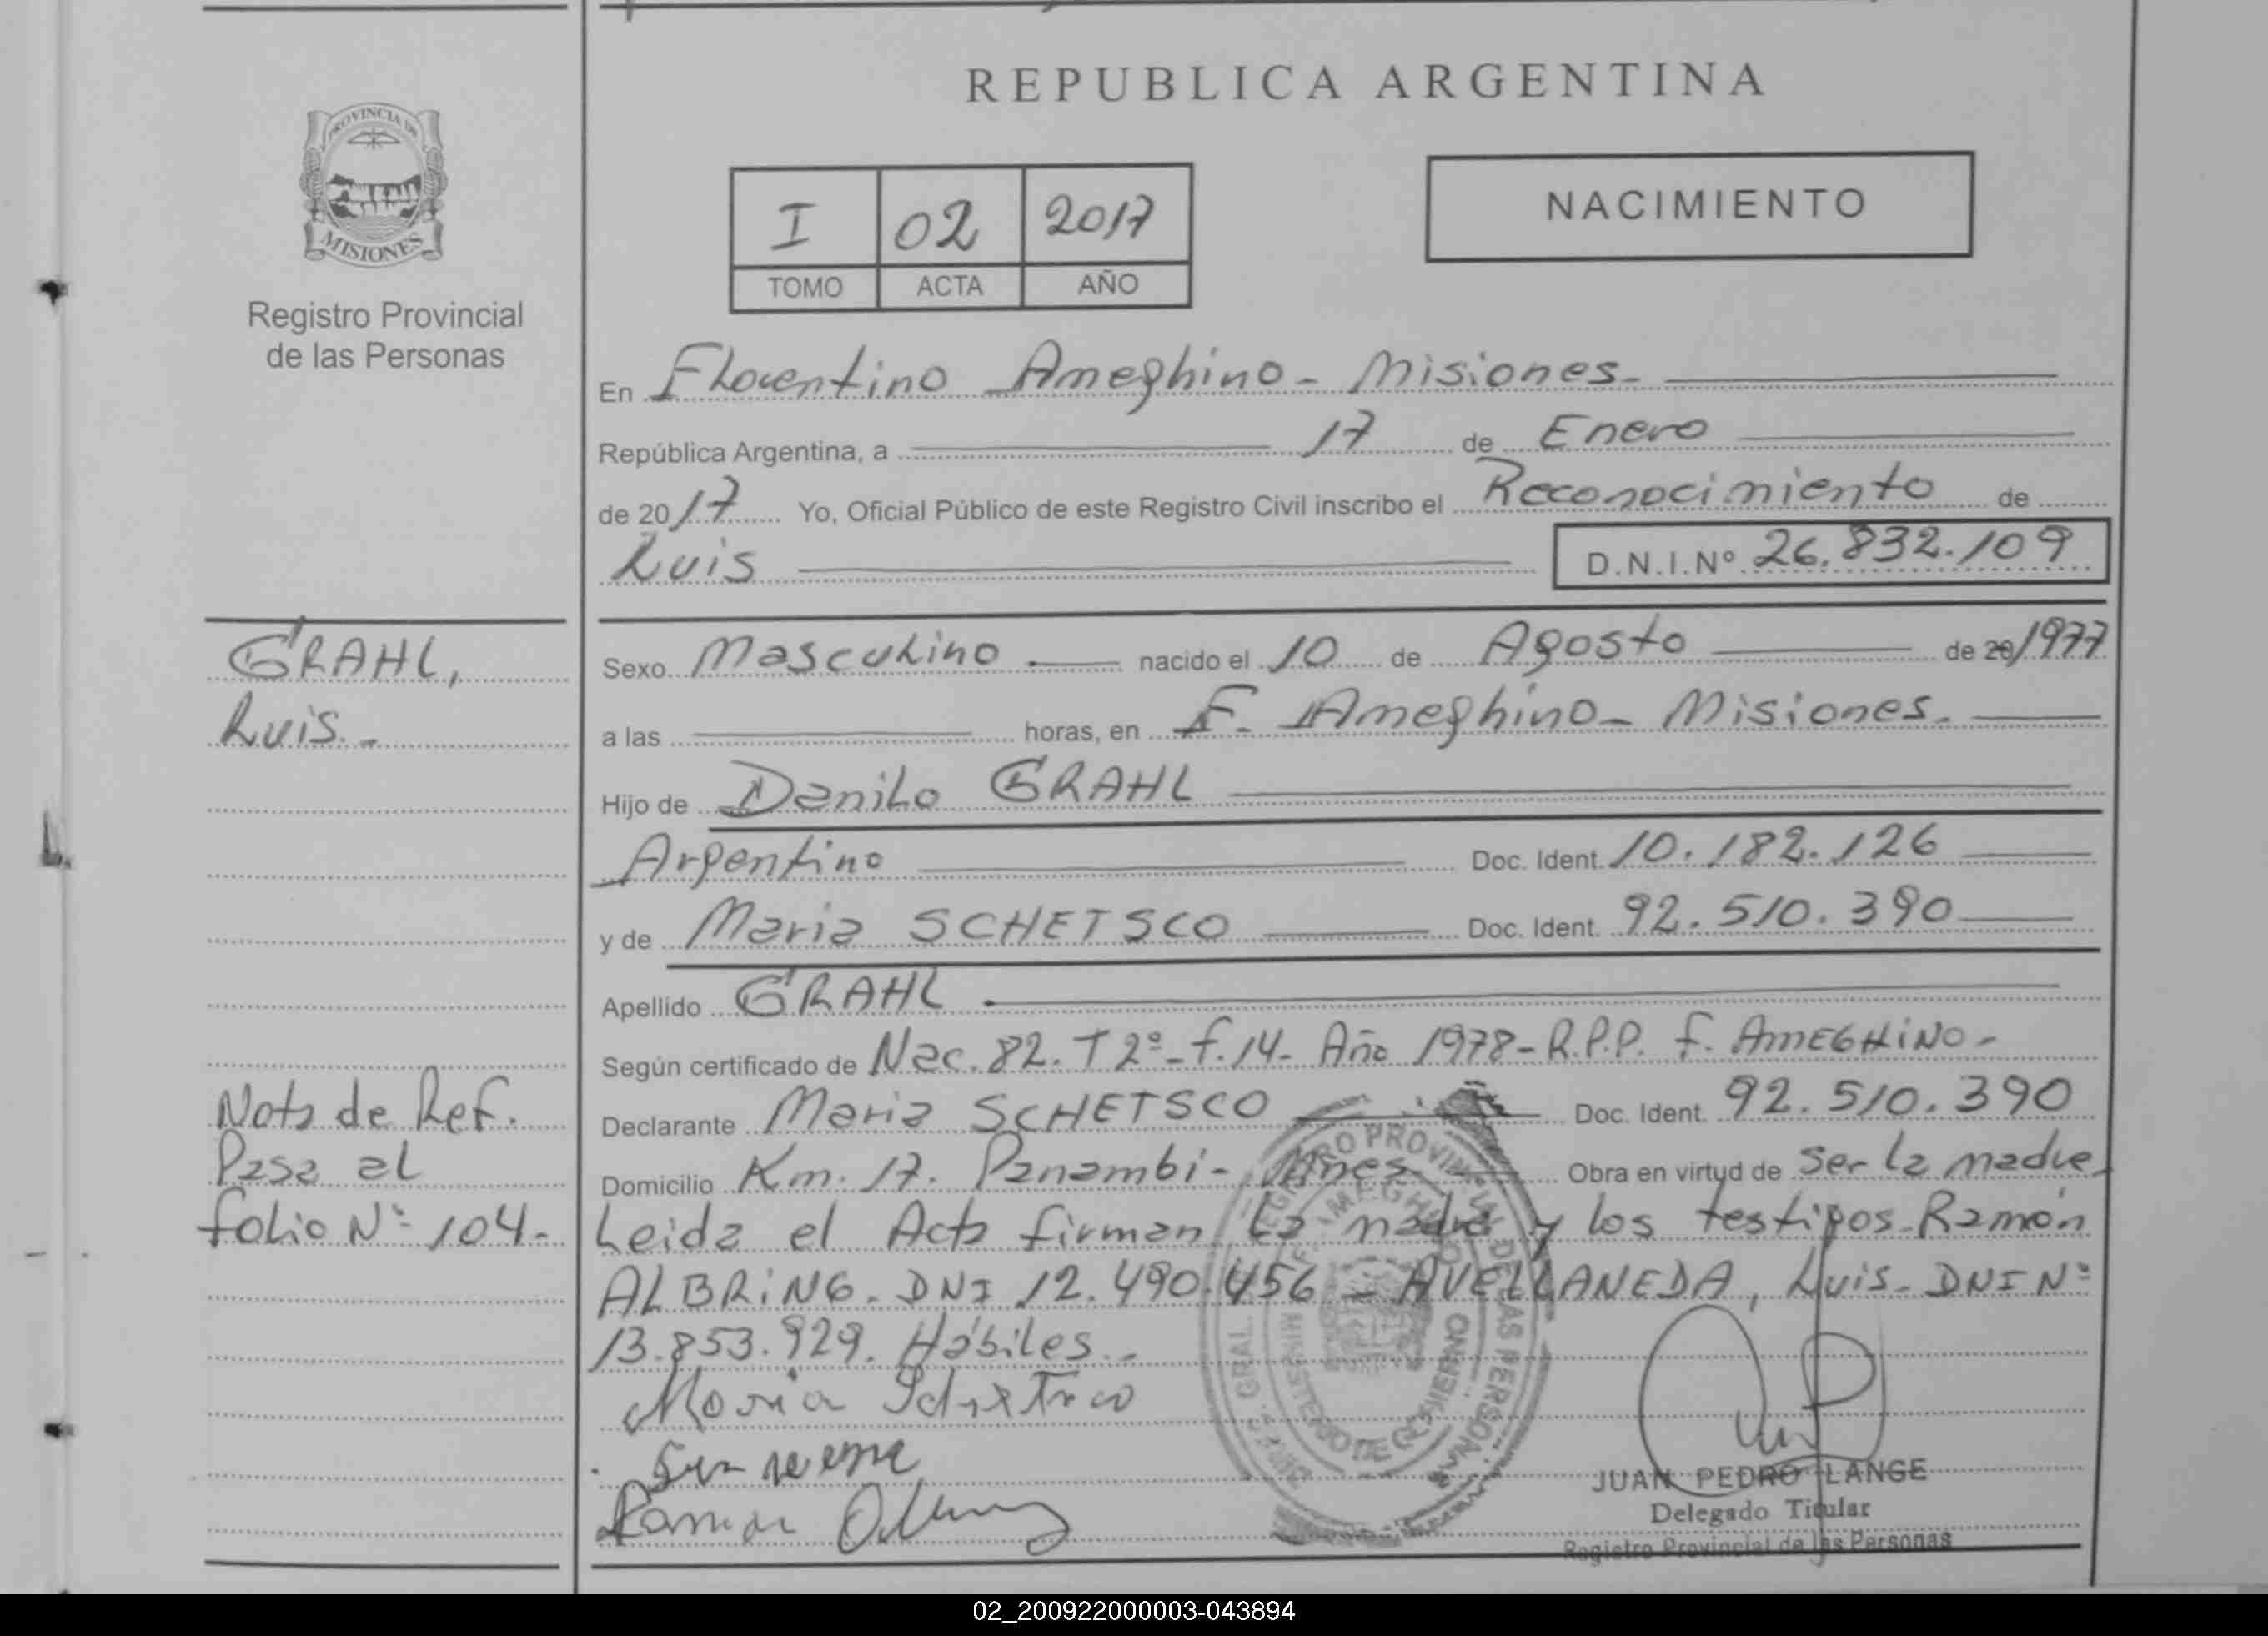 REPUBLICA ARGENTINA
PROVINCIA DE
MISIONES
Registro Provincial
de las Personas
I 02 2017
TOMO ACTA AÑO
NACIMIENTO
En Florentino Ameghino - Misiones -
República Argentina, a 17 de Enero
de 2017 Yo, Oficial Público de este Registro Civil inscribo el Reconocimiento de
Luis D.N.I.Nº 26.832.109
GRAHL,
Luis.-
Sexo Masculino nacido el 10 de Agosto de 20/1977
a las horas, en F. Ameghino - Misiones.
Hijo de Danilo GRAHL
Argentino Doc. Ident. 10.182.126
y de Maria SCHETSCO Doc. Ident. 92.510.390
Apellido GRAHL
Según certificado de Nac. 82. T 2º - f. 14 - Año 1978 - R.P.P. F. AMEGHINO -
Nota de Ref.
Pasa al
folio Nº 104.-
Declarante Maria SCHETSCO Doc. Ident. 92.510.390
Domicilio Km. 17. Panambi - Mnes Obra en virtud de ser la madre,
Leida el Acta firman la madre y los testigos Ramón
ALBRING. DNI 12.490.456 - AVELLANEDA, Luis - DNI Nº
13.853.929. Hábiles.-
Maria
Ramon
JUAN PEDRO LANGE
Delegado Titular
Registro Provincial de las Personas
02_200922000003-043894